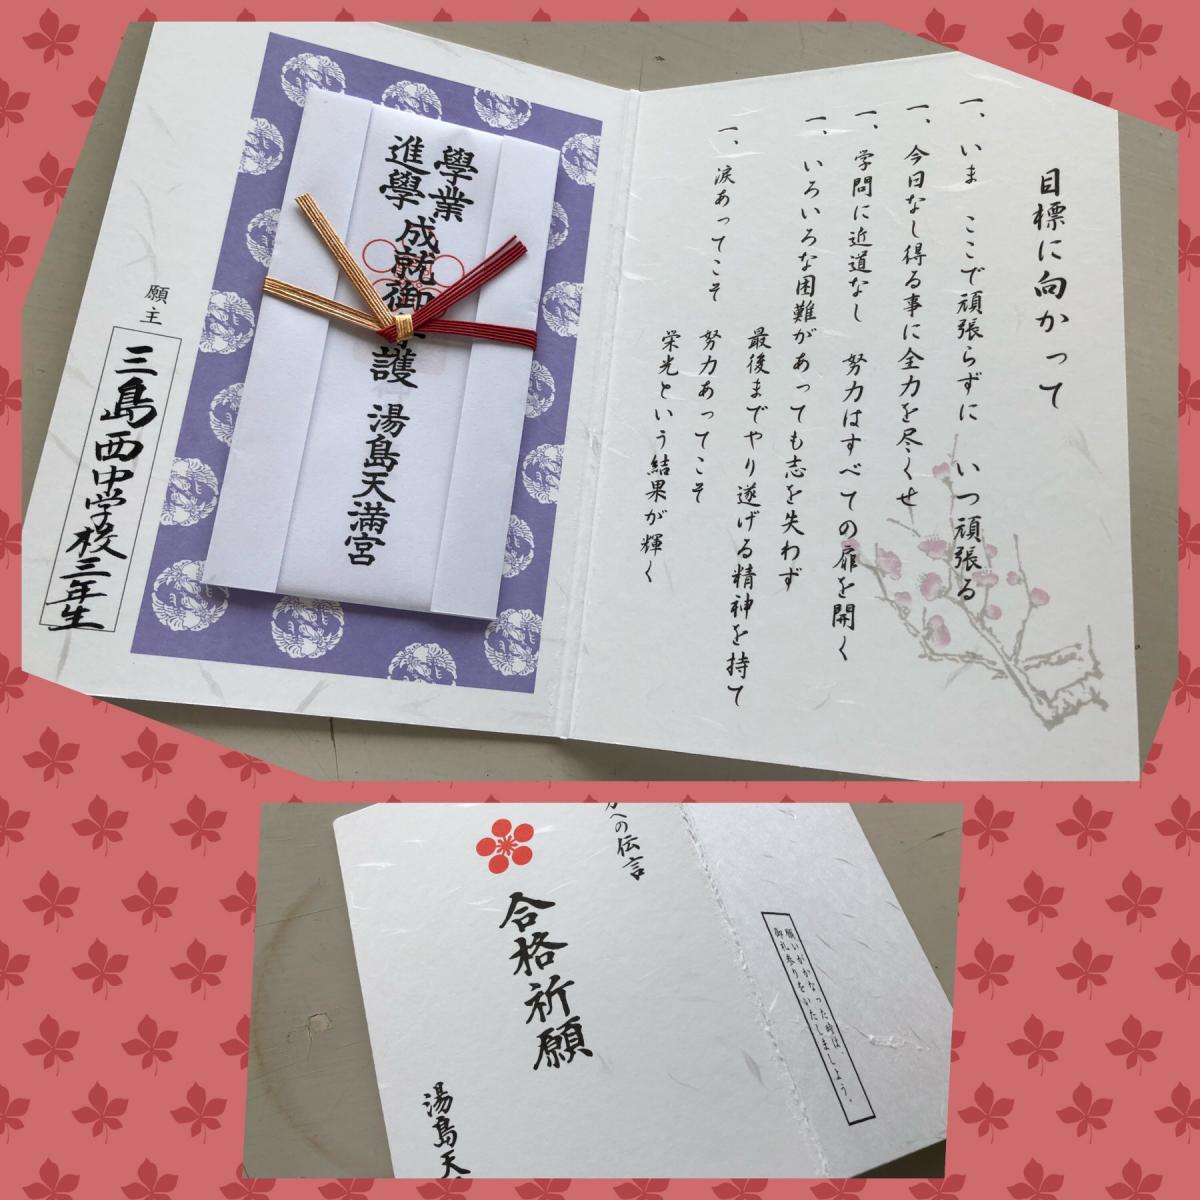 目標に向かって
一、いま ここで頑張らずに いつ頑張る
一、今日なし得る事に全力を尽くせ
一、学問に近道なし 努力はすべての扉を開く
一、いろいろな困難があっても志を失わず
最後までやり遂げる精神を持て
一、涙あってこそ
努力あってこそ
栄光という結果が輝く
學業
進學
成就御
護
湯島天満宮
願主
三島西中学校三年生
願いがかなった時は、
御礼参りをいたしましょう。
への伝言
合格祈願
湯島天